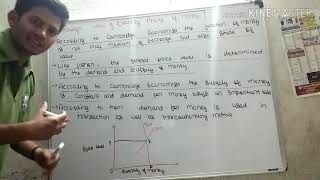 KINEMASTER
Quantity Theory of money
According to Cambridge Economist the function of money
is not only medium of Exchange but also Store of
value
Like when the general price level is determined
by the demand and supply of money
According to Cambridge Economist the Supply of money
is Constant and demand for money plays an important role
According to them demand for money is used in
transaction as well as precautionary motive
Price level
Quantity of money